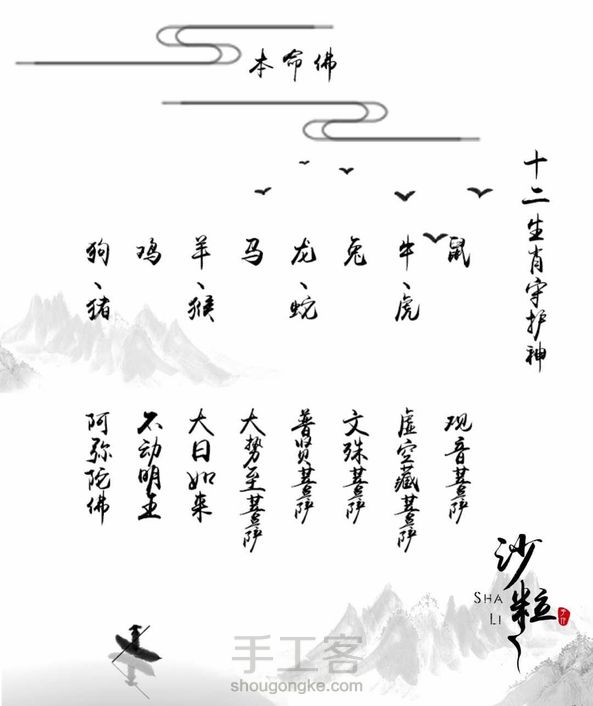 本命佛
十二生肖守护神
鼠
牛、虎
兔
龙、蛇
马
羊、猴
鸡
狗、猪
观音菩萨
虚空藏菩萨
文殊菩萨
普贤菩萨
大势至菩萨
大日如来
不动明王
阿弥陀佛
沙粒
SHA
LI
手工客
shougongke.com